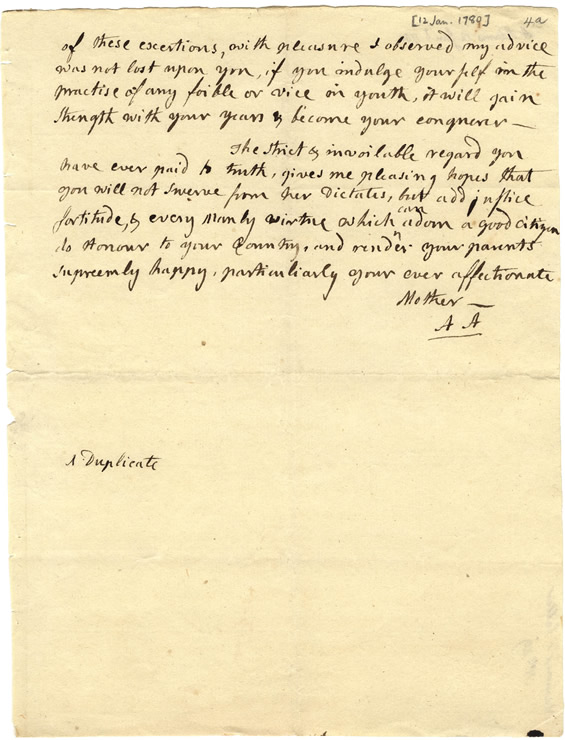 [12 Jan. 1780] 4a
of these excertions, with pleasure I observed my advice
was not lost upon you, if you indulge yourself in the
practise of any foible or vice in youth, it will gain
Strength with your years & become your conquerer —
The strict & invoilable regard you
have ever paid to truth, gives me pleasing hopes that
you will not swerve from her Dictates, but add justice
fortitude, & every Manly virtue which can adorn a good citizen
do Honour to your Country, and render your parents
supreemly happy, particuliarly your ever affectionate
Mother —
A A
A Duplicate